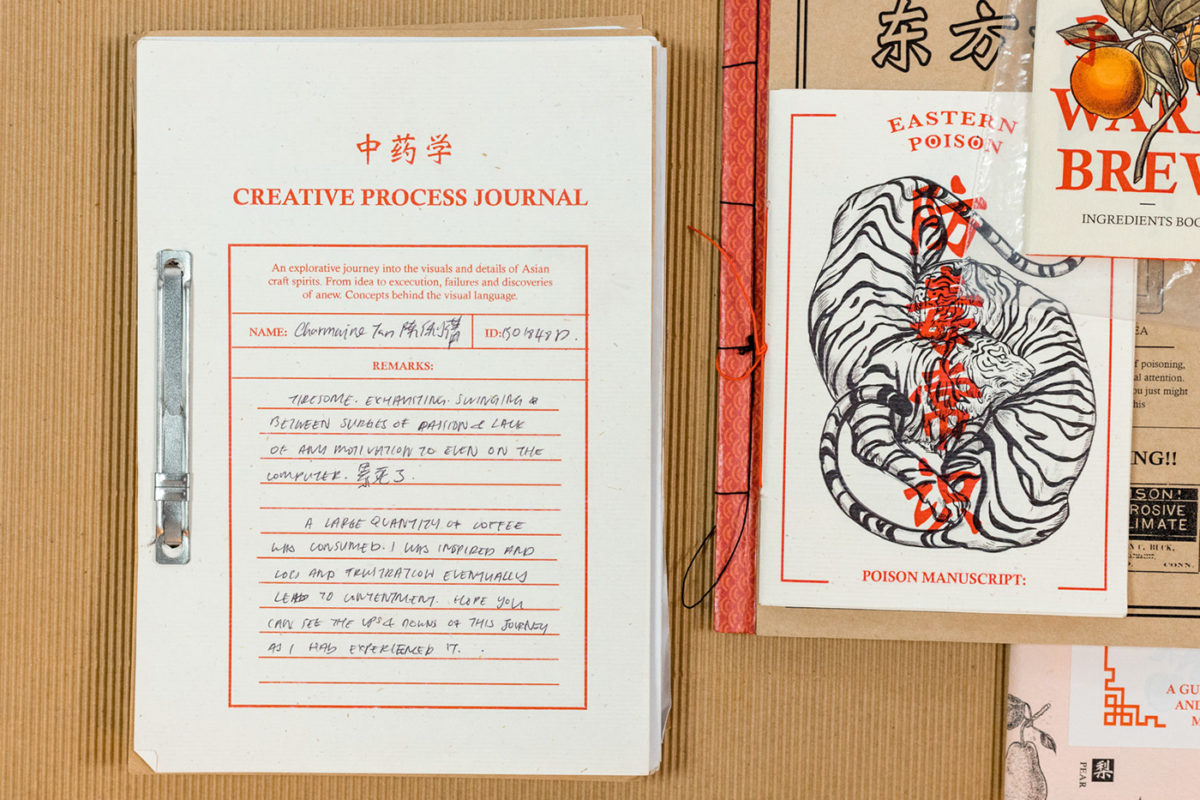 中药学
CREATIVE PROCESS JOURNAL
An explorative journey into the visuals and details of Asian
craft spirits. From idea to excecution, failures and discoveries
of anew. Concepts behind the visual language.
NAME: Charmaine Tan 陈
ID:
REMARKS:
TIRESOME. EXHAUSTING. SWINGING
BETWEEN SURGES OF PASSION & LACK
OF ANY MOTIVATION TO EVEN ON THE
COMPUTER. 累死了.
A LARGE QUANTITY OF COFFEE
WAS CONSUMED. I WAS INSPIRED AND
AND FRUSTRATION EVENTUALLY
LEAD TO CONTENTMENT. HOPE YOU
CAN SEE THE UPS & DOWNS OF THIS JOURNEY
AS I HAD EXPERIENCED IT.
东方
EASTERN
POISON
POISON MANUSCRIPT:
子
WAR
BREW
INGREDIENTS BOO
EA
f poisoning,
al attention.
ou just might
his
NG!!
ISON!
ROSIVE
LIMATE
BUCK,
CONN.
A GU
AND
M
梨
PEAR